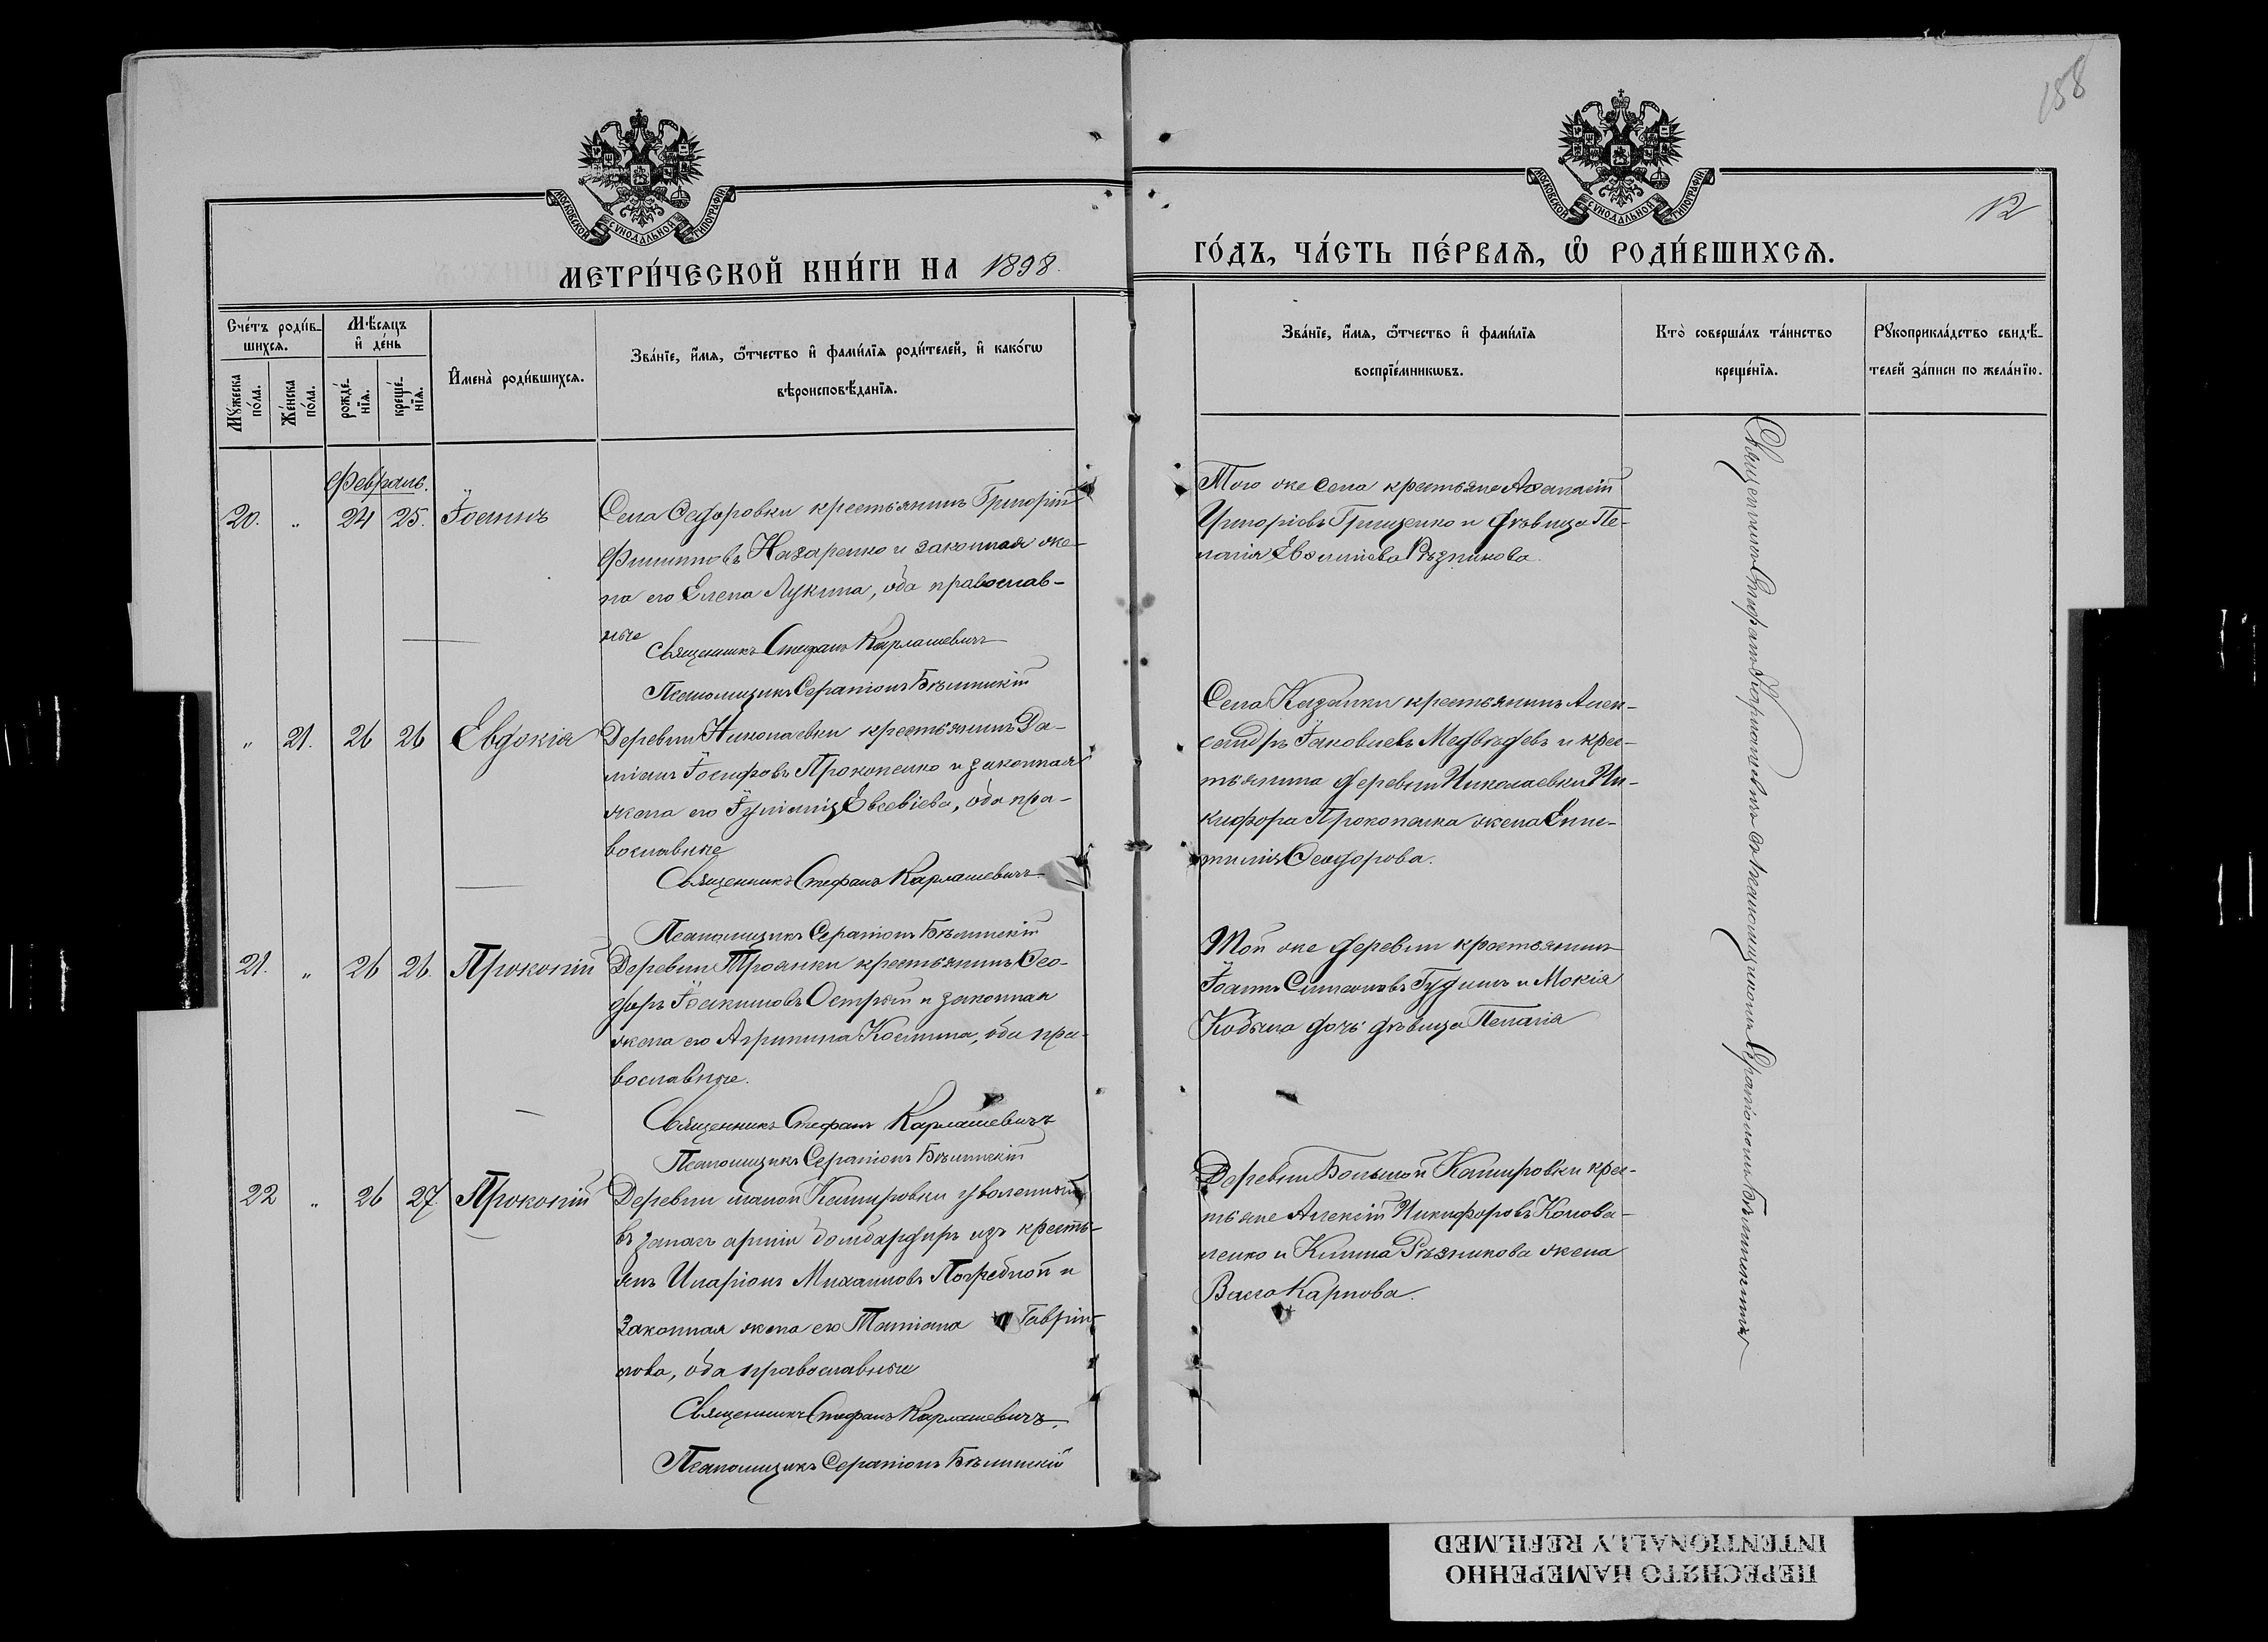 158
12
МОСКОВСКОЙ СѴНОДАЛЬНОЙ ТИПОГРАФІИ
МОСКОВСКОЙ СѴНОДАЛЬНОЙ ТИПОГРАФІИ
МЕТРИ́ЧЕСКОЙ КНИ́ГИ НА 1898.
ГО́ДЪ, ЧА́СТЬ ПЕ́РВАѦ, Ѡ҆ РОДИ́ВШИХСѦ.
Сче́тъ роди́в-
шихсѧ.
Мꙋ́жеска
по́ла.
Же́нска
по́ла.
Мѣ́сѧцъ
и҆ де́нь
рожде́-
нїѧ.
креще́-
нїѧ.
И҆мена̀ роди́вшихсѧ.
Зва́нїе, и҆́мѧ, ѻ҆́тчество и҆ фами́лїѧ роди́телей, и҆ како́гѡ
вѣроисповѣ́данїѧ.
Зва́нїе, и҆́мѧ, ѻ҆́тчество и҆ фами́лїѧ
воспрїе́мникѡвъ.
Кто̀ соверша́лъ та́инство
креще́нїѧ.
Рꙋкоприкла́дство свидѣ́-
телей за́писи по жела́нїю.
Февраль.
20. " 24 25. Іоаннъ
Села Ѳедоровки крестьянинъ Григорій
Филипповъ Назаренко и законная же-
на его Елена Лукина, оба православ-
ные
Священникъ Стефанъ Карлашевичъ
Псаломщикъ Серапіонъ Бѣлинскій
Того же села крестьяне Аѳанасій
Григоріевъ Грищенко и дѣвица Пе-
лагія Рѣзникова
" 21. 26 26 Евдокія
Деревни Николаевки крестьянинъ Да-
міанъ Іосифовъ Прокопенко и законная
жена его Іуліанія Евсевіева, оба пра-
вославные
Священникъ Стефанъ Карлашевичъ
Псаломщикъ Серапіонъ Бѣлинскій
Села Казанки крестьянинъ Алек-
сандръ Іаковлевъ Медвѣдевъ и крес-
тьянина деревни Николаевки Ни-
кифора Прокопенка жена Епис-
тилія Ѳеодорова.
21. " 26 26. Прокопій
Деревни Троянки крестьянинъ Ѳео-
доръ Іоакимовъ Острый и законная
жена его Агрипина Косьмина, оба пра-
вославные.
Священникъ Стефанъ Карлашевичъ
Псаломщикъ Серапіонъ Бѣлинскій
Той же деревни крестьянинъ
Іоаннъ Симеоновъ Гудимъ и Мокія
Кобыла дочь дѣвица Пелагія
22 " 26 27. Прокопій
Деревни малой Кашировки уволенный
въ запасъ арміи бомбардиръ изъ кресть-
янъ Иларіонъ Михаиловъ Погребной и
законная жена его Татіана Гаврии-
лова, оба православные
Священникъ Стефанъ Карлашевичъ.
Псаломщикъ Серапіонъ Бѣлинскій
Деревни Большой Кашировки крес-
тьяне Алексій Никифоровъ Конова-
ленко и Рѣзникова жена
Васса Карпова.
Священникъ Стефанъ Карлашевичъ съ псаломщикомъ Серапіономъ Бѣлинскимъ
ПЕРЕСНЯТО НАМЕРЕННО
INTENTIONALLY REFILMED